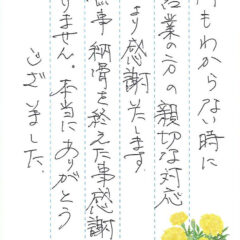 何もわからない時に
営業の方の親切な対応
より感謝いたします。
事納骨を終えた事感謝
りません。本当にありがとう
ございました。